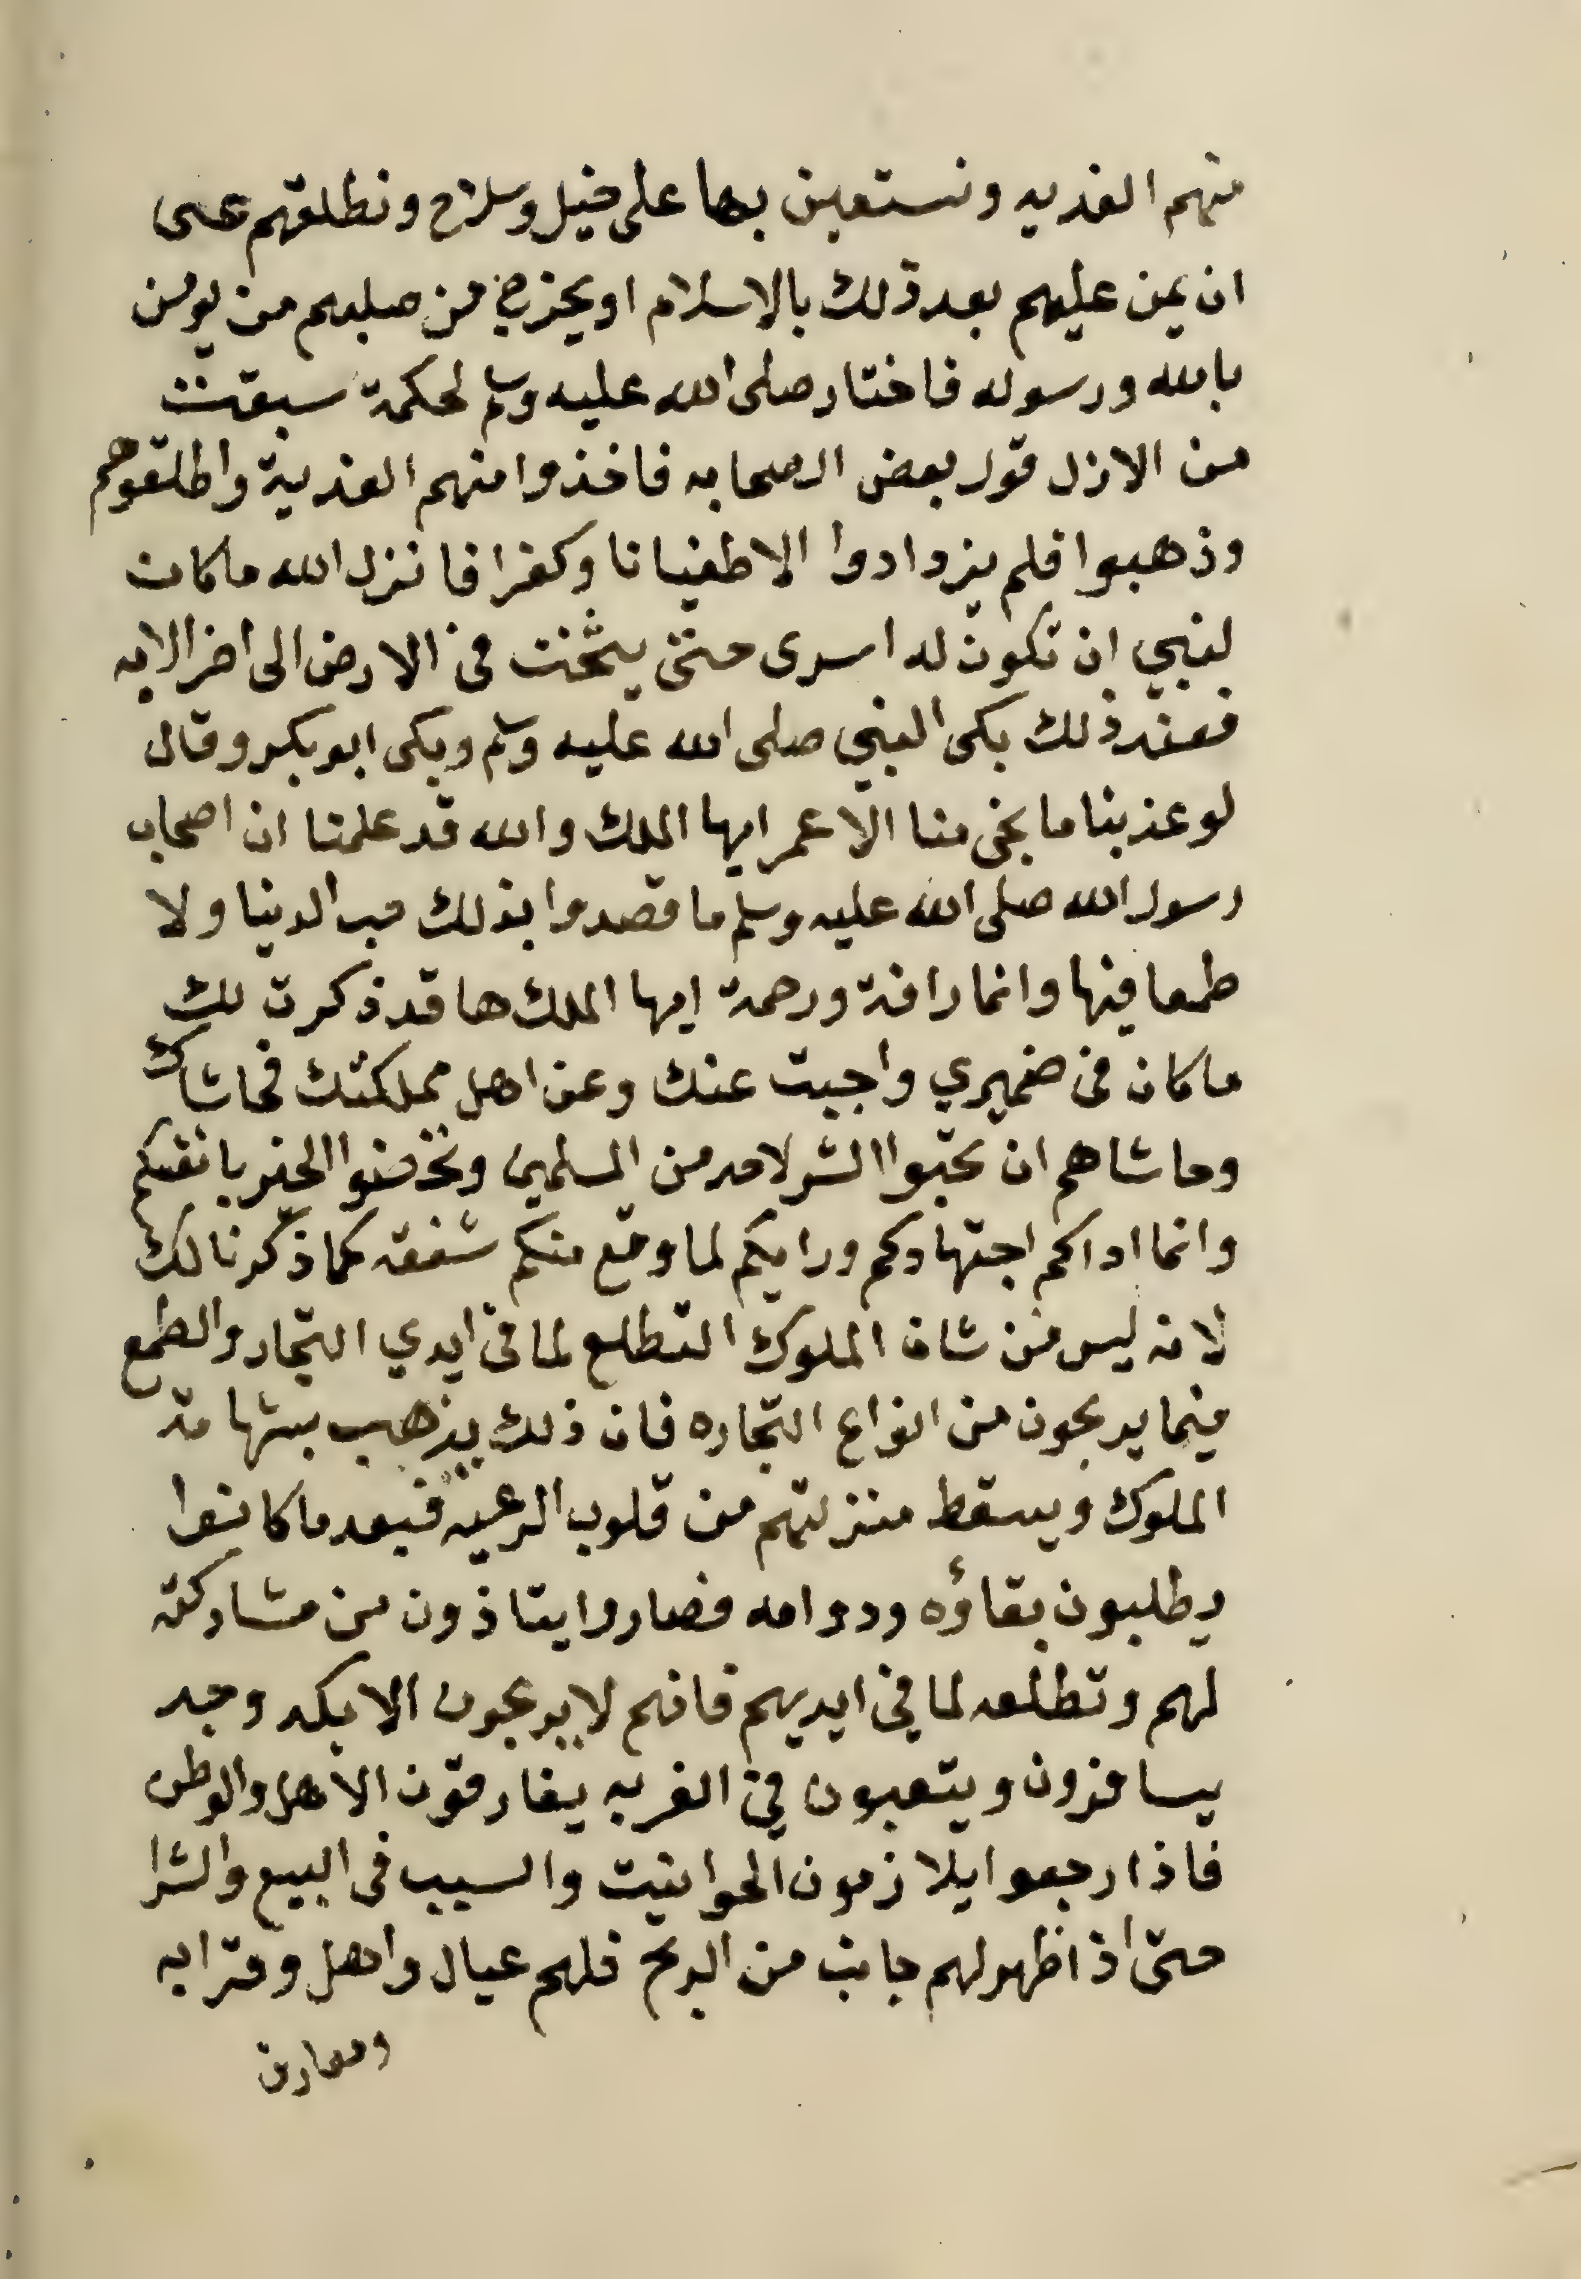 منهم الفديه ونستعين بها على خيل وسلاح ونطلقهم عسى
ان يمن عليهم بعد ذلك بالاسلام او يخرج من صلبهم من يومن
بالله ورسوله فاختار صلى الله عليه وسلم لحكمة سبقت
من الازل قول بعض الصحابه فاخذوا منهم الفدية واطلقوهم
وذهبوا فلم يزدادوا الا طغيانا وكفرا فانزل الله ماكان
لنبي ان تكون له اسرى حتى يثخن في الارض الى اخر الايه
فعند ذلك بكى النبي صلى الله عليه وسلم وبكى ابو بكر وقال
لو عذبنا ما نجى منا الا عمر ايها الملك والله قد علمنا ان اصحاب
رسول الله صلى الله عليه وسلم ما قصدوا بذلك حب الدنيا ولا
طمعا فيها وانما رافة ورحمة ايها الملك ها قد ذكرت لك
ما كان في ضميري واجبت عنك وعن اهل مملكتك فحاشاك
وحاشاهم ان تحبوا الشر لاحد من المسلمين الخير بانفسكم
وانما اداكم اجتهادكم ورايكم لما وقع منكم شفقه كما ذكرنا لك
لانه ليس من شان الملوك التطلع لما في ايدي التجار والطمع
فيما يربحون من انواع التجاره فان ذلك يذهب بشهامة
الملوك ويسقط منزلتهم من قلوب الرعيه فبعد ما كانوا
يطلبون بقاؤه ودوامه فصاروا يتاذون من مشاركته
لهم وتطلعه لما في ايديهم فانهم لا يربحون الا بكد وجد
يسافرون ويتعبون في الغربه يفارقون الاهل والوطن
فاذا رجعوا يلازمون الحوانيت والسبب في البيع والشرا
حتى اذا ظهر لهم جانب من الربح فلهم عيال واهل وقرابه
ومعارف